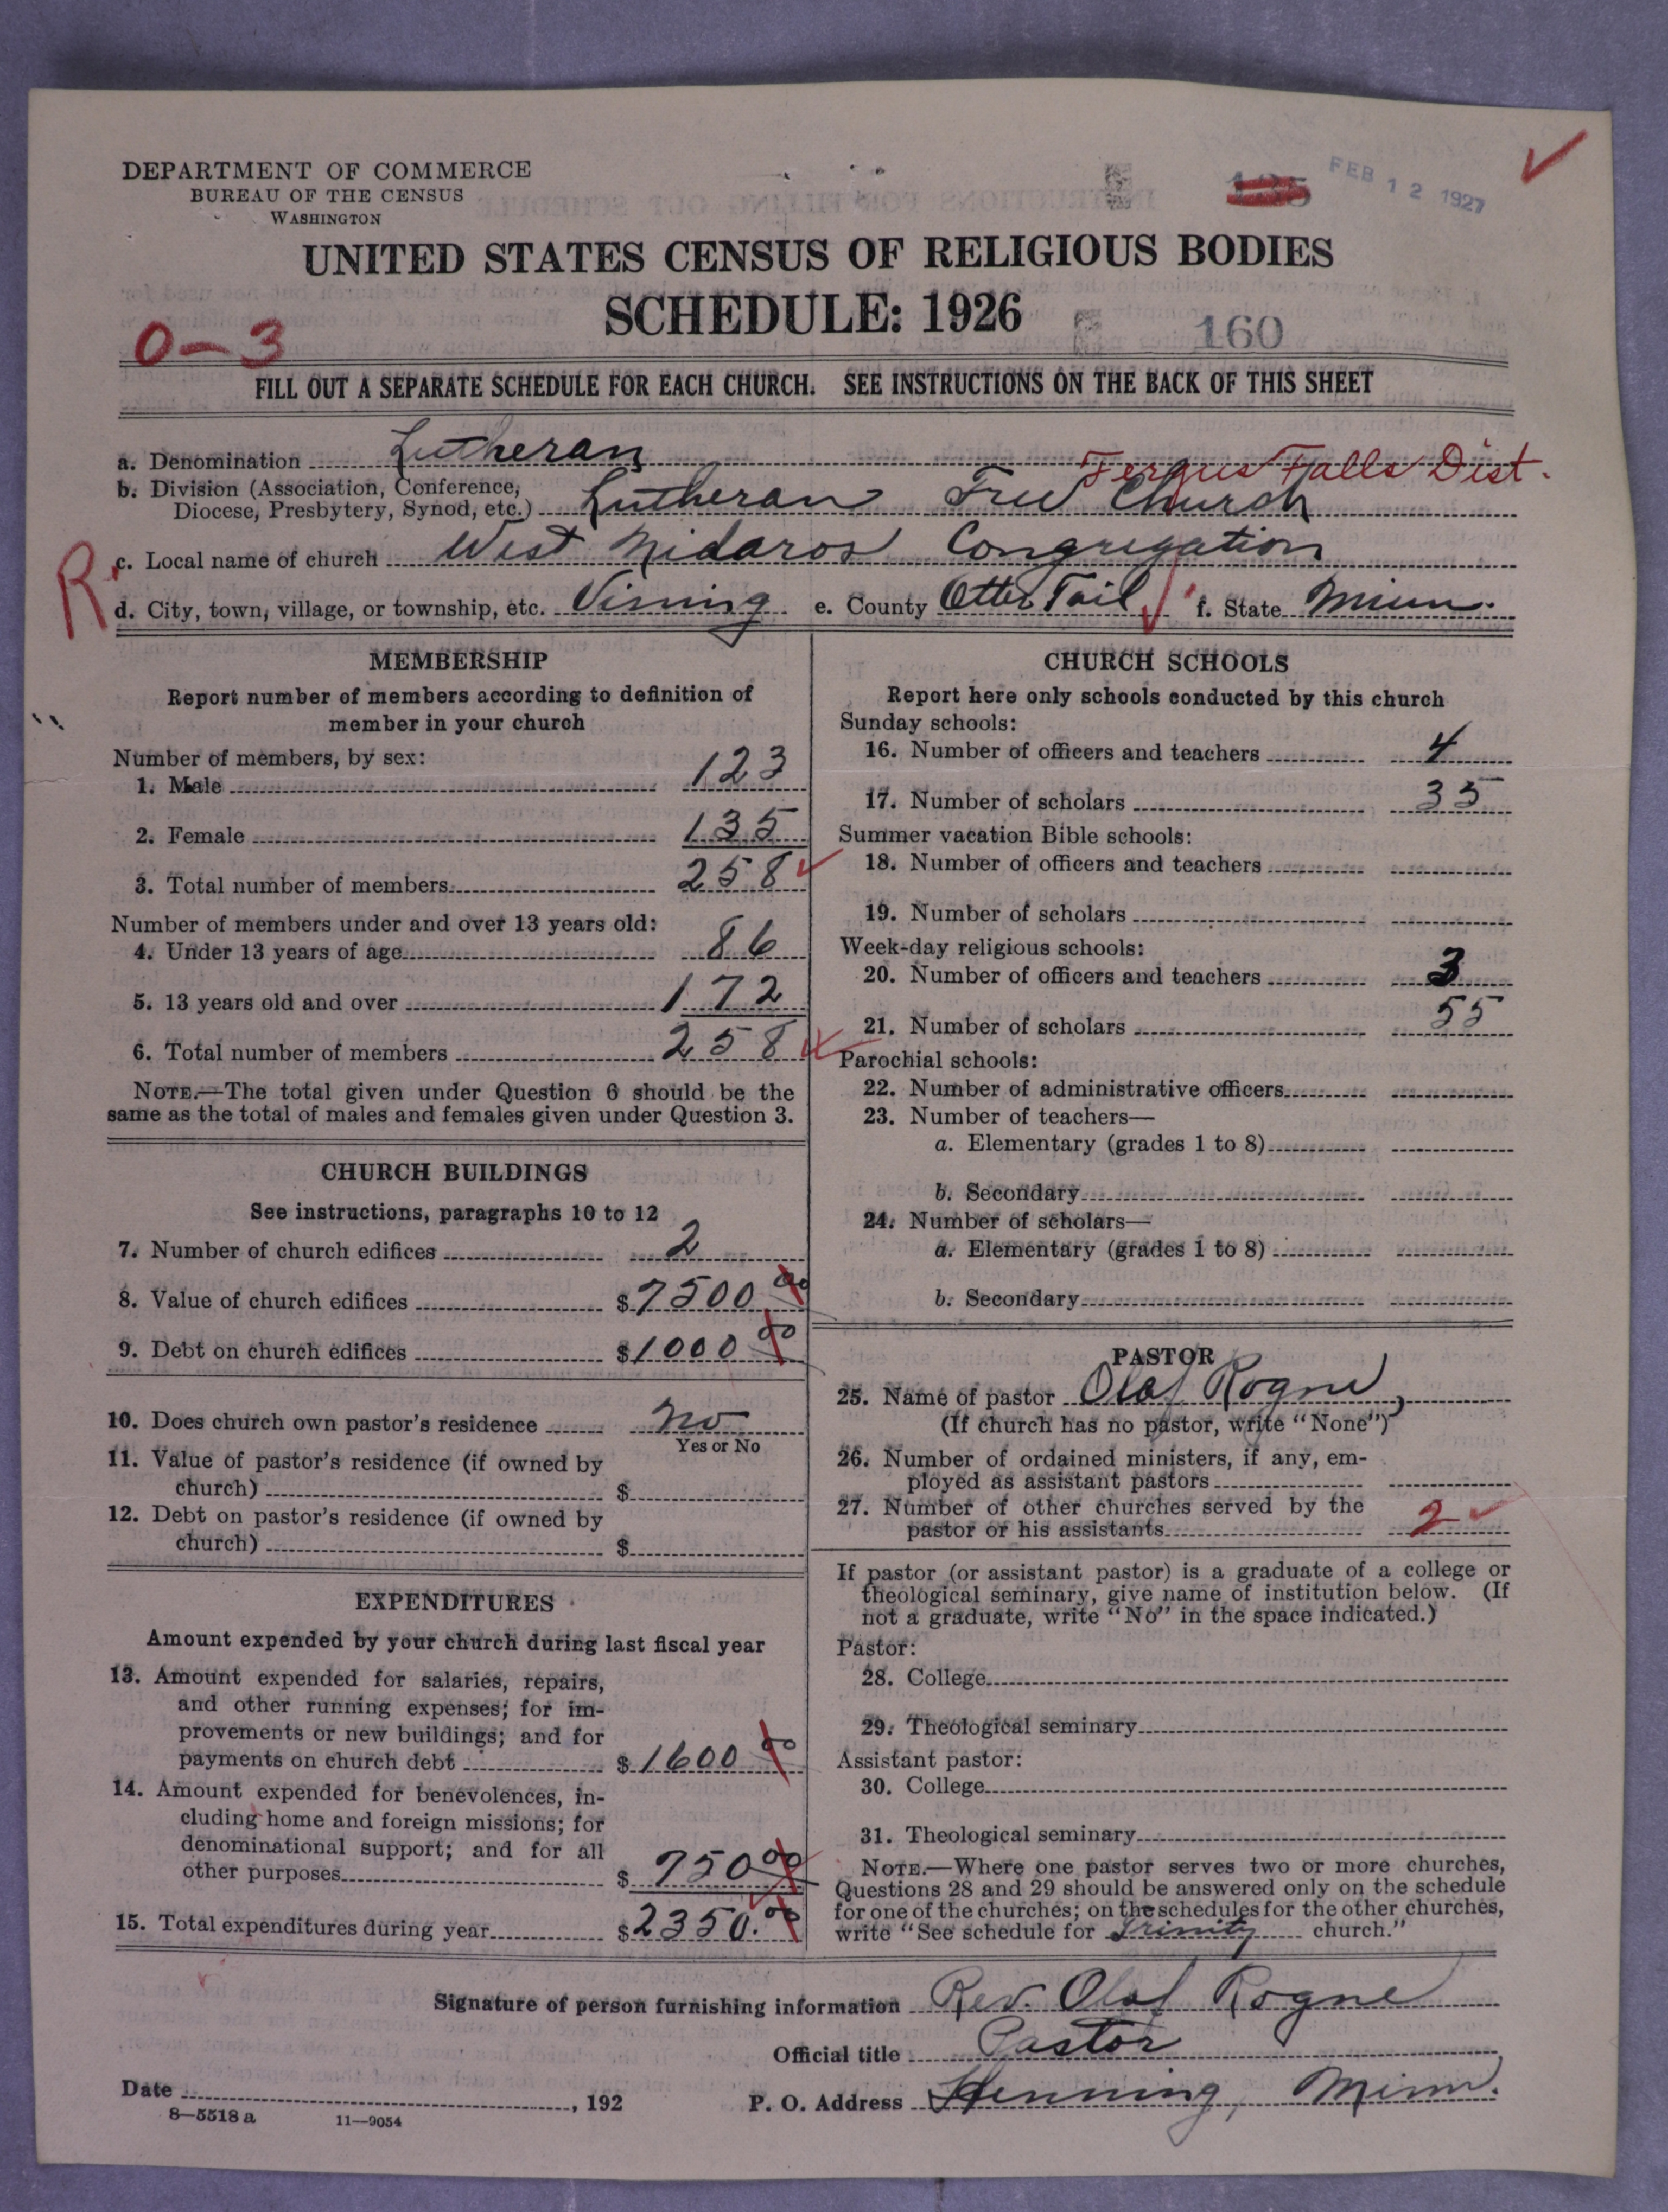 DEPARTMENT OF COMMERCE
BUREAU OF THE CENSUS
WASHINGTON
FEB 12 1927
UNITED STATES CENSUS OF RELIGIOUS BODIES
SCHEDULE: 1926
160
0-3
FILL OUT A SEPARATE SCHEDULE FOR EACH CHURCH. SEE INSTRUCTIONS ON THE BACK OF THIS SHEET
a. Denomination Lutheran
Fergus Falls Dist.
b. Division (Association, Conference, Diocese, Presbytery, Synod, etc.) Lutheran Free Church
R
c. Local name of church West Nidaros Congregation
d. City, town, village, or township, etc. Vining e. County Otter Tail f. State Minn.
MEMBERSHIP
Report number of members according to definition of
member in your church
Number of members, by sex:
1. Male 123
2. Female 135
3. Total number of members 258
Number of members under and over 13 years old:
4. Under 13 years of age 86
5. 13 years old and over 172
6. Total number of members 258
NOTE.—The total given under Question 6 should be the
same as the total of males and females given under Question 3.
CHURCH BUILDINGS
See instructions, paragraphs 10 to 12
7. Number of church edifices 2
8. Value of church edifices $7500.00
9. Debt on church edifices $1000.00
10. Does church own pastor's residence no
Yes or No
11. Value of pastor's residence (if owned by
church) $
12. Debt on pastor's residence (if owned by
church) $
EXPENDITURES
Amount expended by your church during last fiscal year
13. Amount expended for salaries, repairs,
and other running expenses; for im-
provements or new buildings; and for
payments on church debt $1600 00
14. Amount expended for benevolences, in-
cluding home and foreign missions; for
denominational support; and for all
other purposes $750 00
15. Total expenditures during year $2350.00
CHURCH SCHOOLS
Report here only schools conducted by this church
Sunday schools:
16. Number of officers and teachers 4
17. Number of scholars 35
Summer vacation Bible schools:
18. Number of officers and teachers
19. Number of scholars
Week-day religious schools:
20. Number of officers and teachers 3
21. Number of scholars 55
Parochial schools:
22. Number of administrative officers
23. Number of teachers—
a. Elementary (grades 1 to 8)
b. Secondary
24. Number of scholars—
a. Elementary (grades 1 to 8)
b. Secondary
PASTOR
25. Name of pastor Olaf Rogne,
(If church has no pastor, write "None")
26. Number of ordained ministers, if any, em-
ployed as assistant pastors
27. Number of other churches served by the
pastor or his assistants 2
If pastor (or assistant pastor) is a graduate of a college or
theological seminary, give name of institution below. (If
not a graduate, write "No" in the space indicated.)
Pastor:
28. College
29. Theological seminary
Assistant pastor:
30. College
31. Theological seminary
NOTE.—Where one pastor serves two or more churches,
Questions 28 and 29 should be answered only on the schedule
for one of the churches; on the schedules for the other churches,
write "See schedule for Trinity church."
Signature of person furnishing information Rev. Olaf Rogne
Official title Pastor
Date , 192
P. O. Address Henning, Minn.
8—5518 a 11—9054